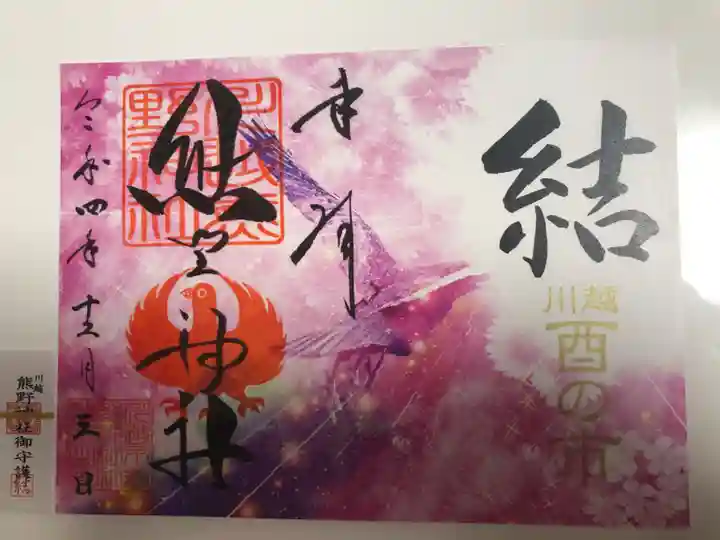 結
川越
酉の市
奉拝
熊野神社
川越熊
野神社
令和四年十二月三日
川越
熊野神社御守護